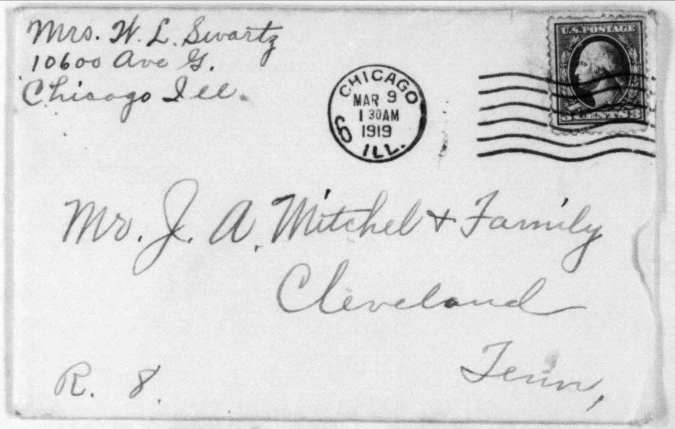 Mrs. W. L. Swartz
10600 Ave G.
Chicago Ill.
CHICAGO
MAR 9
1 30 AM
1919
ILL.
U.S. POSTAGE
3 CENTS 3
Mr. J. A. Mitchel & Family
Cleveland
Tenn,
R. 8.